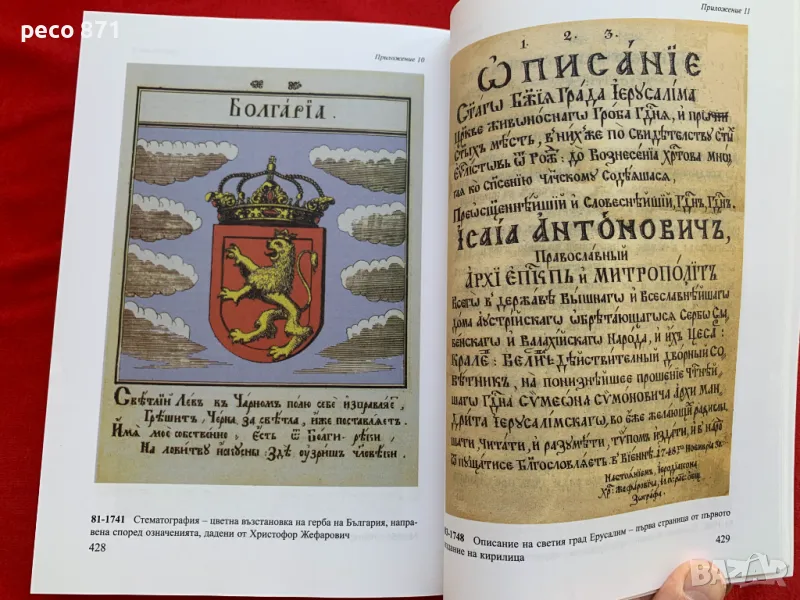 peco 871
Приложение 10
БОЛГА́РІА.
Свѣтлїй Левъ въ Чарномъ полю себе изправляє,
Грѣшитъ, Черна за свѣтла, иже поставлаетъ.
Имя моє собственно, Єсть ѿ Болги-рѣки,
На ловитву искусны: Здѣ оузришъ Чловѣки.
81-1741 Стематография – цветна възстановка на герба на България, напра-
вена според означенията, дадени от Христофор Жефарович
428
Приложение 11
1. 2. 3.
Ѡписа́нїе
Ст҃а́гѡ Бж҃їѧ Гра́да Їерꙋсали́ма
Цр҃кве живоно́снагѡ Гро́ба Гдⷭ҇нѧ, и про́чїи
Ст҃ыхъ мѣстъ, в'ни́хже по Свидѣтелствꙋ
ѿ Рож: до Вознесе́нїѧ Хрⷭ҇това
ко Сп҃сенїю Чл҃ческомꙋ Содѣѧшасѧ.
Преѡсщеннѣйшїй и Словеснѣйшїй, Гдⷭ҇нъ, Гдⷭ҇нъ.
ІСАІ́А АНТО́НОВИЧЪ,
Правосла́вный
АРХЇЕПⷭ҇КПЪ и МИТРОПОЛІ́ТЪ
Всегѡ в' держа́вѣ Вы́шнагѡ и Всесла́внѣйшагѡ
до́ма Аꙋстрїйскагѡ ѡбрѣта́ющагосѧ Сербо Сла
ве́нскагѡ и Валахі́йскагѡ Наро́да, и и́хъ Цеса:
Кра́ле: Вели́ч: Дѣйстви́телный дво́рный Со
вѣтникъ, на пони́знѣйшее проше́нїе Чт҃нѣй,
шагѡ Гдⷭ҇на Сѷмеѡ́на Сѷмоно́вича Архи ман,
дри́та Їерꙋсали́мскагѡ, во є́же жела́ющїй
шати, чита́ти, и разꙋмѣ́ти, тѵ́помъ изда́ти, и в' наро
ѿпꙋща́тисе Бл҃гословлѧ́етъ в' Вїе́ннѣ. 1748
Настоѧ́нїемъ, Їеродїа́кона
Хр: Жефаро́вича,
Зꙋгра́фа.
-1748 Описание на светия град Ерусалим – първа страница от първото
издание на кирилица
429
bazar.bg